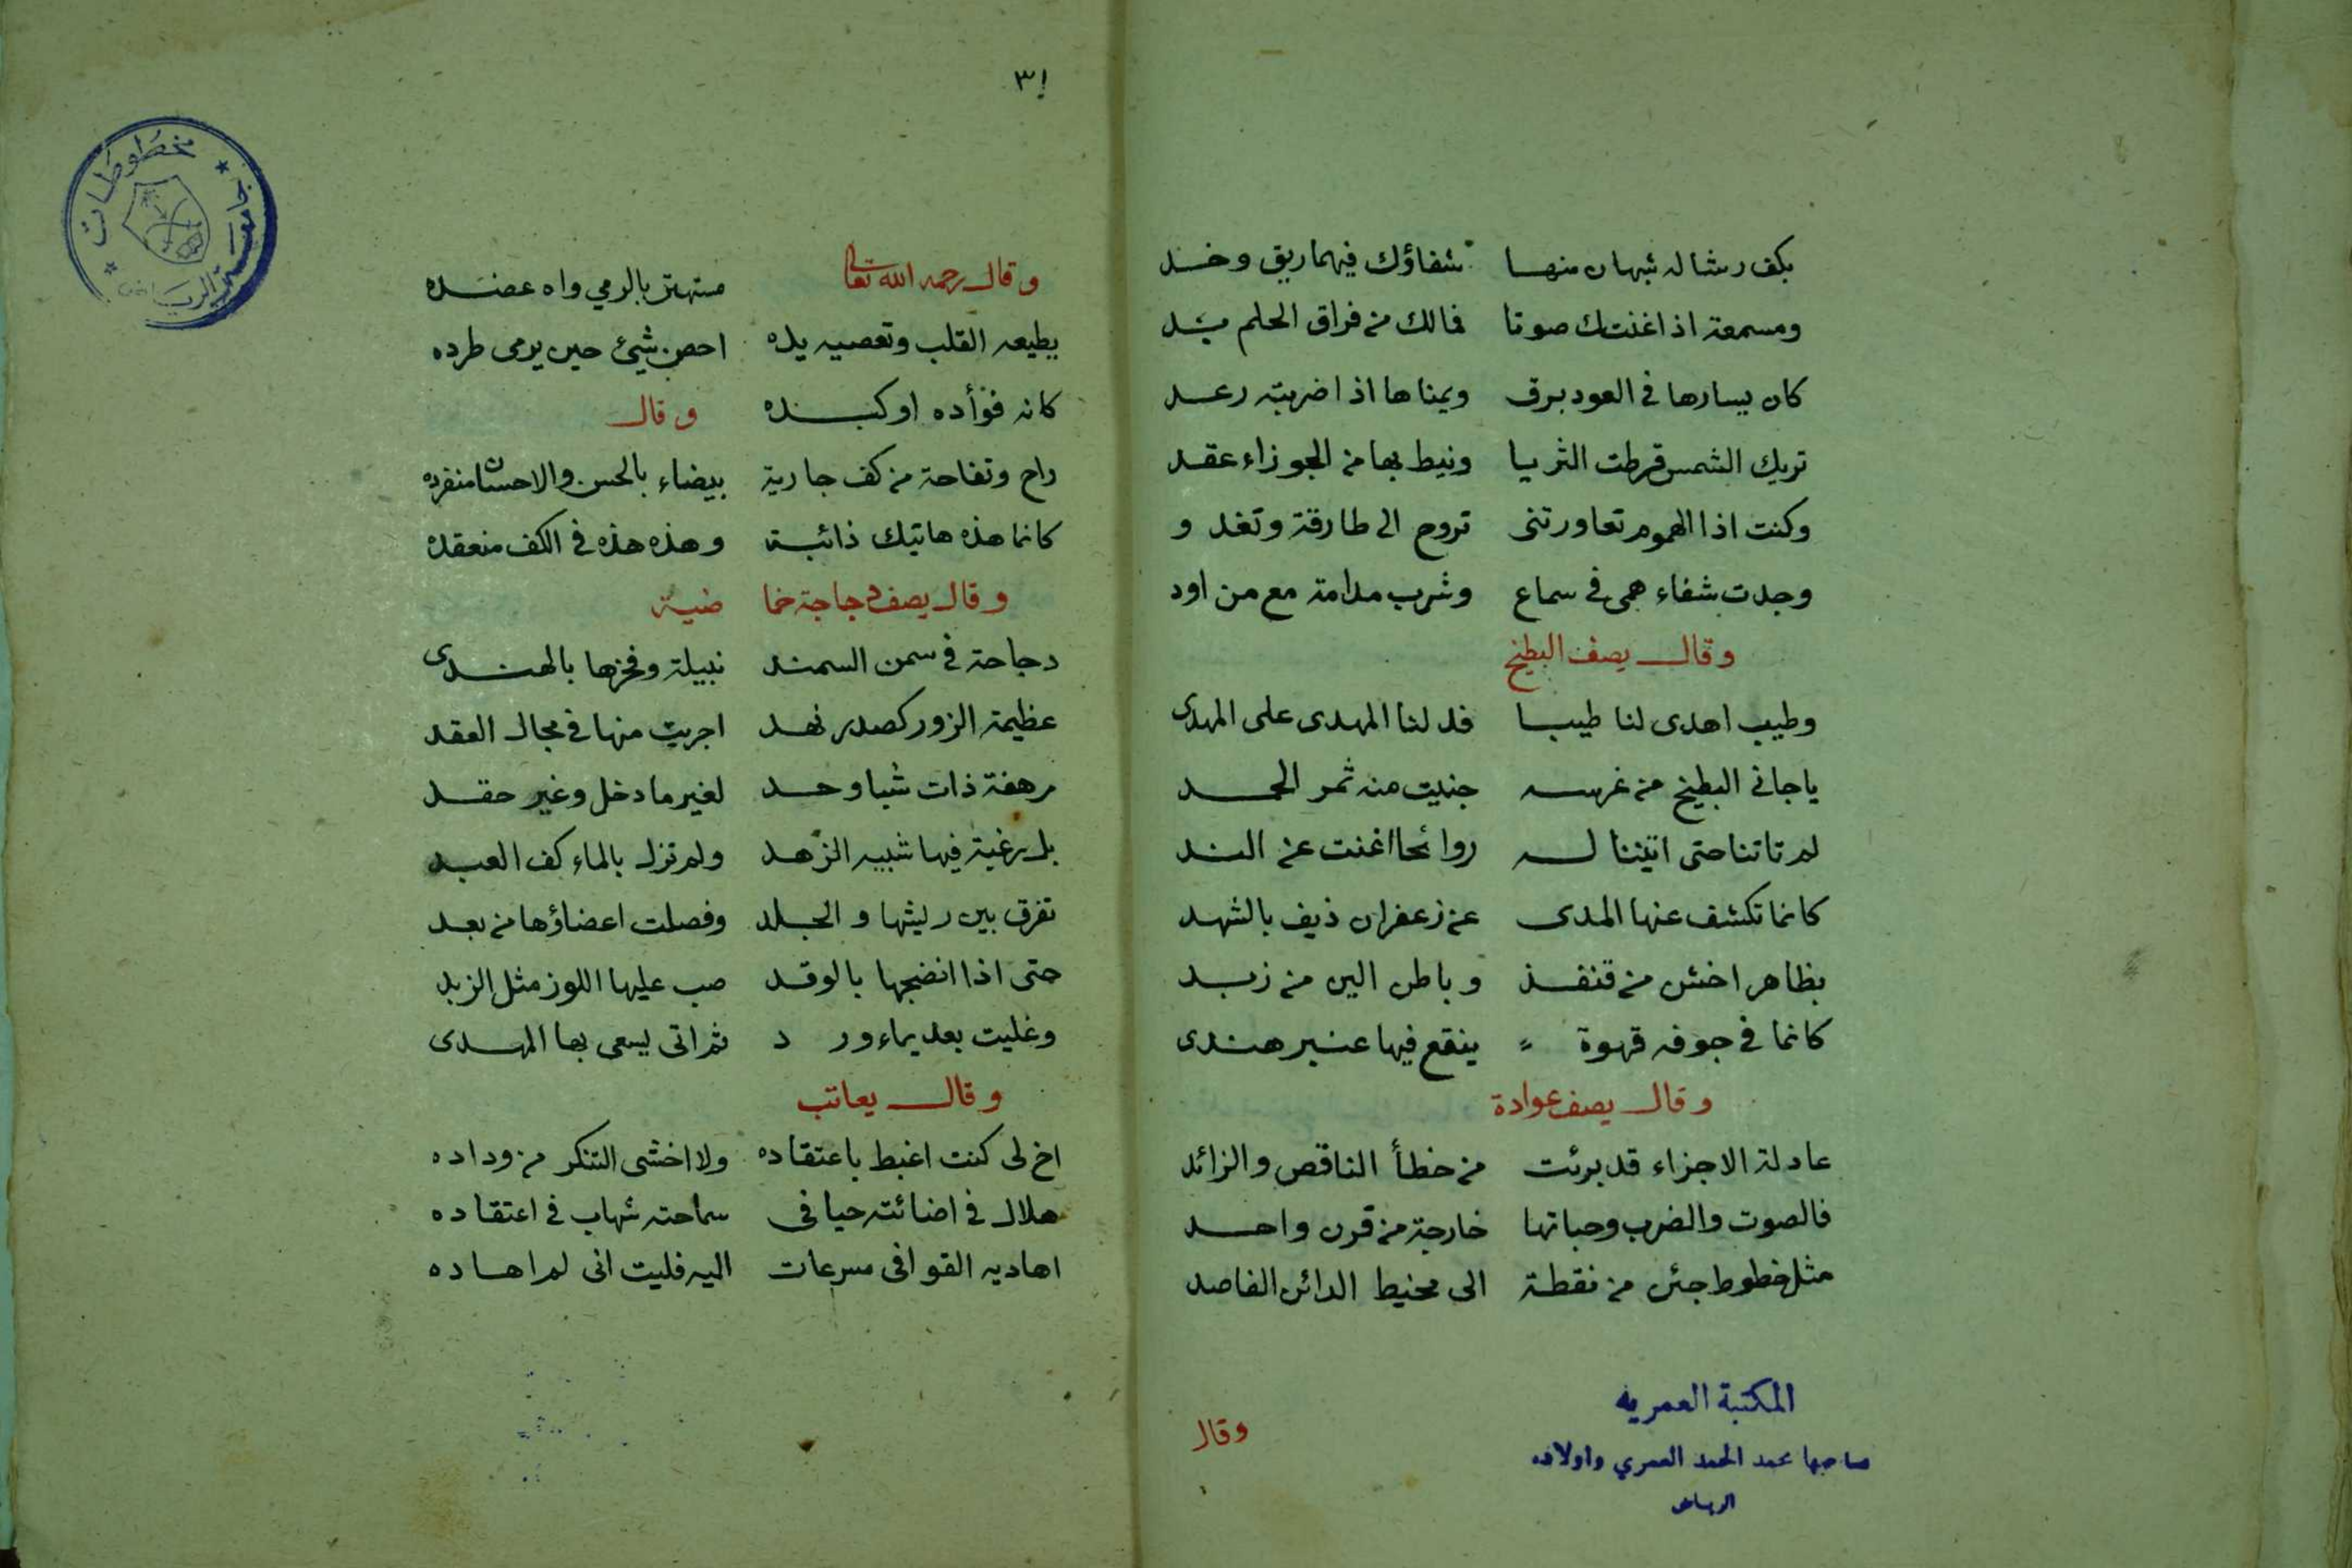 بكف رشا له شبهان منها شفاؤك فيهما ريق وخد
ومسمعة اذا غنتك صوتا فمالك من فراق الحلم بد
كان يسارها في العود برق ويمناها اذا ضربته رعد
تريك الشمس قرطت الثريا ونيط بها من الجوزاء عقد
وكنت اذا الهموم تعاورتنى تروح الى طارقة وتغد و
وجدت شفاء همى في سماع وشرب مدامة مع من اود
وقال يصف البطيخ
وطيب اهدى لنا طيبا فدلنا المهدى على المهدى
ياجانى البطيخ من غرسه جنيت منه ثمر الحمد
لم تاتنا حتى اتيتنا له روائحا اغنت عن الند
كانما تكشف عنها المدى عن زعفران ذيف بالشهد
بظاهر اخشن من قنفذ وباطن الين من زبد
كانما في جوفه قهوة ينقع فيها عنبر هندى
وقال يصف عوادة
عادلة الاجزاء قد برئت من خطأ الناقص والزائد
فالصوت والضرب وحباتها خارجة من قرن واحد
مثل خطوط جئن من نقطة الى محيط الدائر القاصد
وقال
المكتبة العمريه
صاحبها محمد الحمد العمري واولاده
الرياض
٣١
مخطوطات جامعة الرياض
وقال رحمه الله تعالى مستهتر بالرمي واه عضده
يطيعه القلب وتعصيه يده احصن شيئ حين يرمى طرده
كانه فؤأده او كبده وقال
راح وتفاحة من كف جارية بيضاء بالحسن والاحسان منفرده
كانما هذه هاتيك ذائبة وهذه هذه في الكف منعقده
وقال يصف دجاجة خما ضية
دجاجة في سمن السمند نبيلة وفخرها بالهندى
عظيمة الزور كصدر نهد اجريت منها في مجال العقد
مرهفة ذات شبا وحد لغير ما دخل وغير حقد
بل رغبة فيها شبيه الزهد ولم تزل بالماء كف العبد
تفرق بين ريشها والجلد وفصلت اعضاؤها من بعد
حتى اذا انضجها بالوقد صب عليها اللوز مثل الزبد
وغليت بعد بماء ور د ثم اتى يسعى بها المهدى
وقال يعاتب
اخ لى كنت اغبط باعتقاده ولا اخشى التنكر من وداده
هلال في اضائته حيا في سماحته شهاب في اعتقاده
اهاديه القوافى مسرعات اليه فليت انى لم اهاده